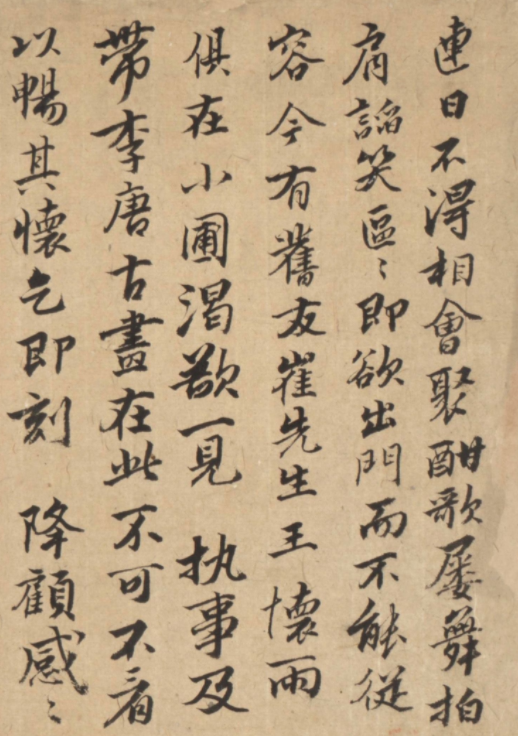 連日不得相會聚酣歌屡舞拍
肩謟笑區〻即欲出門而不能從
容今有舊友崔先生王懷雨
俱在小圃渴欲一見 执事及
帶李唐古畫在此不可不看
以暢其懷乞即刻 降顧感〻